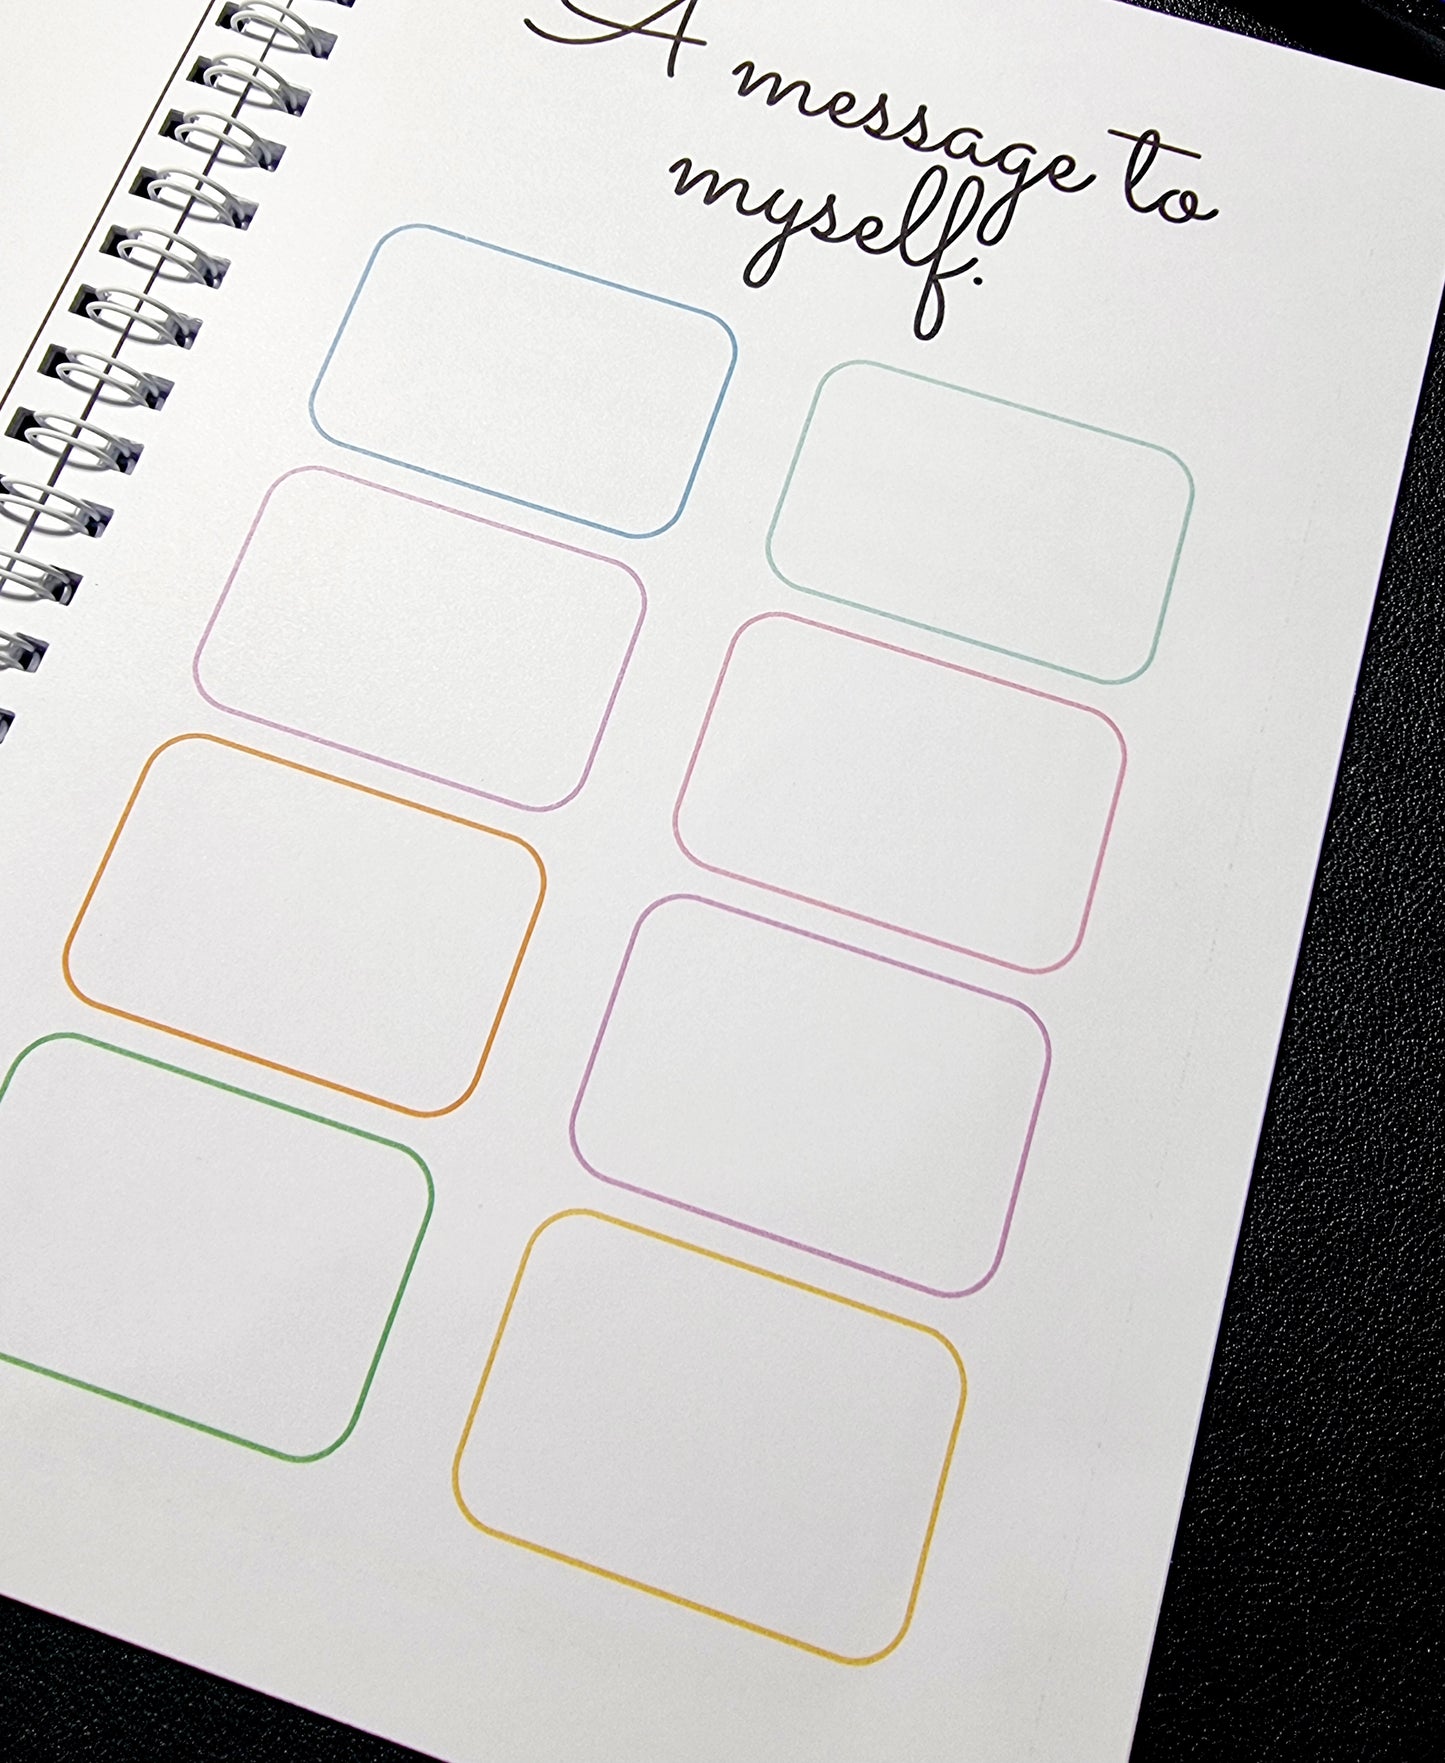 A message to
myself.